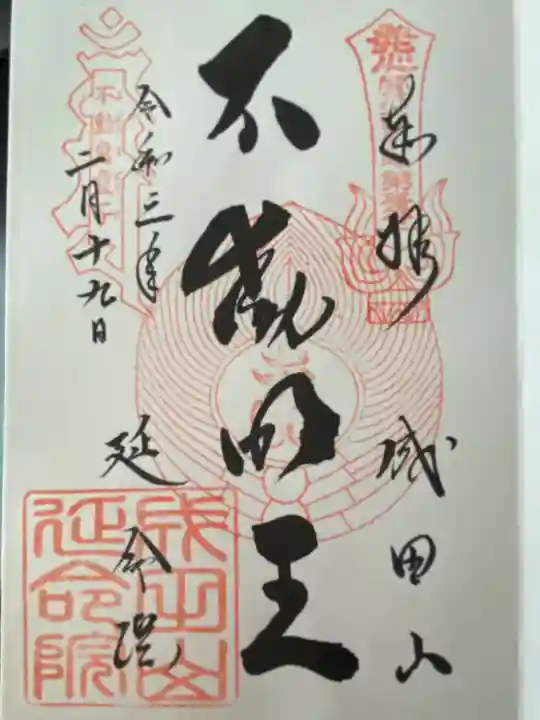 奉拝
成田山
不動明王
令和三年
二月十九日
延命院
成田山
延命院